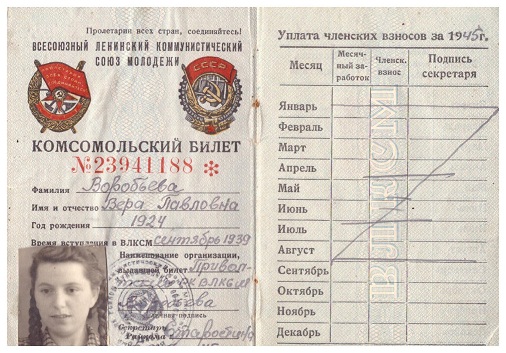 Пролетарии всех стран, соединяйтесь!
ВСЕСОЮЗНЫЙ ЛЕНИНСКИЙ КОММУНИСТИЧЕСКИЙ
СОЮЗ МОЛОДЕЖИ
СССР
КОМСОМОЛЬСКИЙ БИЛЕТ
№23941188 *
Фамилия Воробьева
Имя и отчество Вера Павловна
Год рождения 1924
Время вступления в ВЛКСМ сентябрь 1939
Наименование организации,
выдавшей билет
РК ВЛКСМ
Личная подпись
Секретарь
Райкома
Уплата членских взносов за 1945г.
Месяц Месяч-ный за-работок Членск. взнос Подпись секретаря
Январь
Февраль
Март
Апрель
Май
Июнь
Июль
Август
Сентябрь
Октябрь
Ноябрь
Декабрь
ВЛКСМ